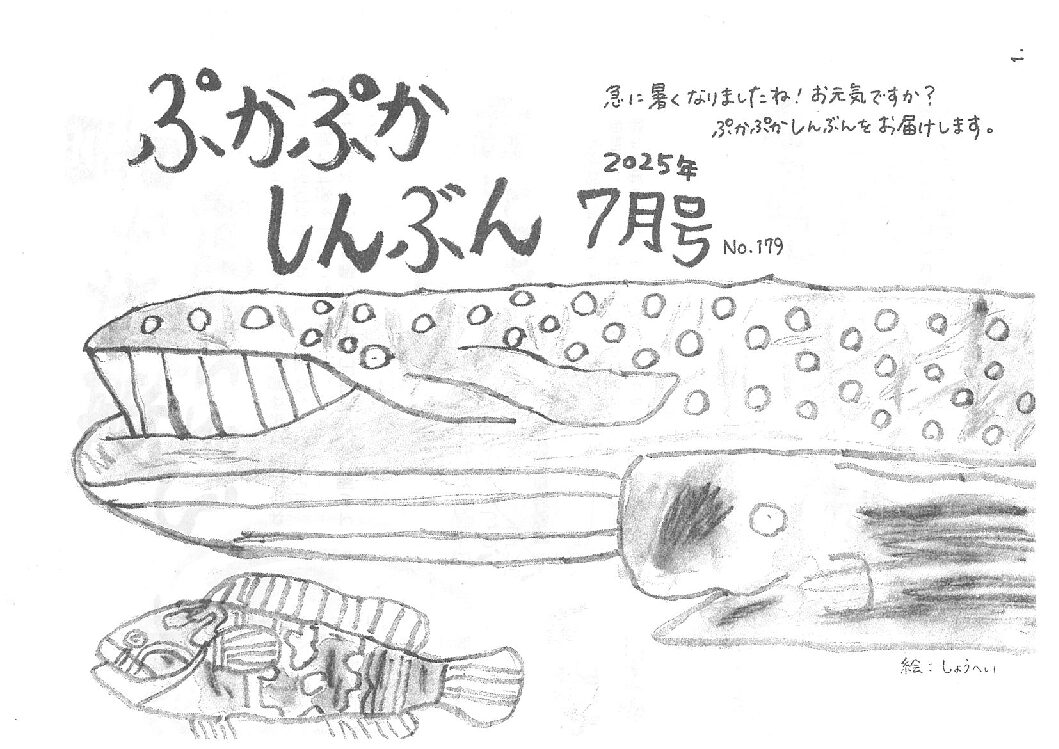 ぷかぷか
しんぶん
急に暑くなりましたね！お元気ですか？
ぷかぷかしんぶんをお届けします。
2025年
7月号 No.179
絵：しょうへい